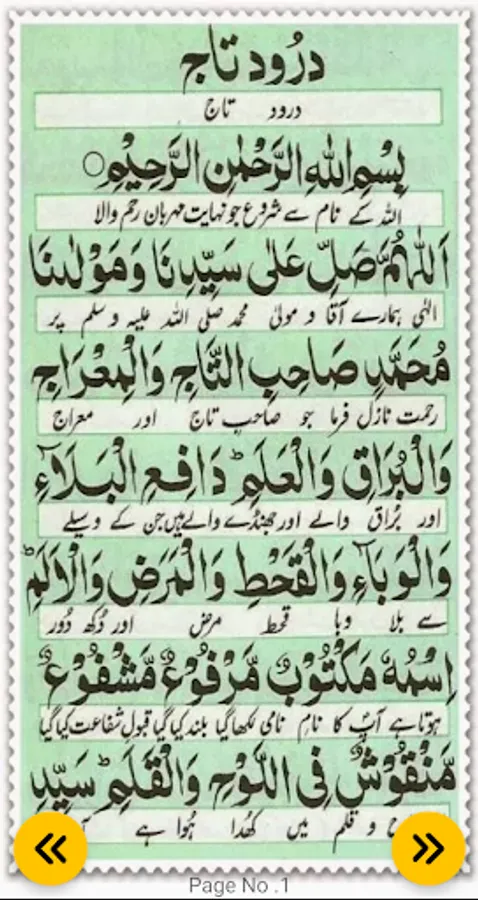 درُود تاج
درود تاج
بِسْمِ اللهِ الرَّحْمٰنِ الرَّحِيْمِ○
اللہ کے نام سے شروع جو نہایت مہربان رحم والا
اَللّٰهُمَّ صَلِّ عَلٰى سَيِّدِنَا وَمَوْلٰىنَا
الٰہی ہمارے آقا و مولیٰ محمد صلی اللہ علیہ وسلم پر
مُحَمَّدٍ صَاحِبِ التَّاجِ وَالْمِعْرَاجِ
رحمت نازل فرما جو صاحب تاج اور معراج
وَالْبُرَاقِ وَالْعَلَمِ ؕ دَافِعِ الْبَلَاۤءِ
اور بُراق والے اور جھنڈے والے ہیں جن کے وسیلے
وَالْوَبَاۤءِ وَالْقَحْطِ وَالْمَرَضِ وَالْاَلَمِ ؕ
سے بلا وبا قحط مرض اور دُکھ دُور
اِسْمُهٗ مَكْتُوْبٌ مَّرْفُوْعٌ مَّشْفُوْعٌ
ہوتا ہے آپؐ کا نام نامی لکھا گیا بلند کیا گیا قبول شفاعت کیا گیا
مَّنْقُوْشٌ فِى اللَّوْحِ وَالْقَلَمِ ؕ سَيِّدِ
و قلم میں کھُدا ہُوا ہے
Page No .1